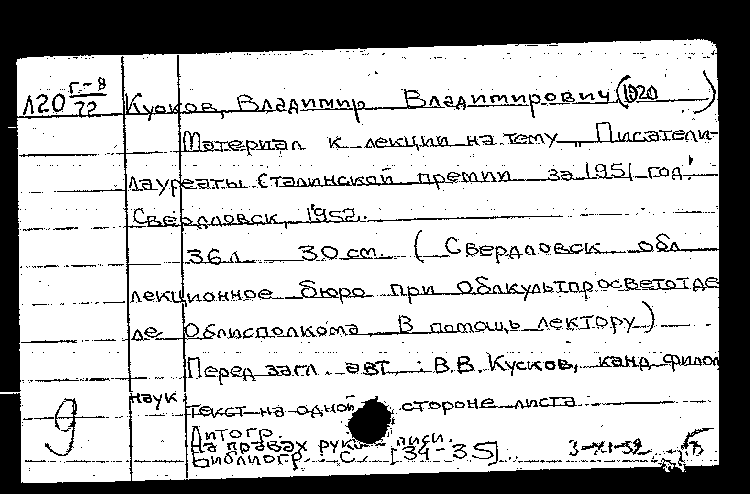 Л20 Г-8/72 Кусков, Владимир Владимирович (1920 )
Материал к лекции на тему „Писатели-
лауреаты Сталинской премии за 1951 год".
Свердловск, 1952.
36 л. 30 см. (Свердловск. обл.
лекционное бюро при Облкультпросветотде
ле Облисполкома. В помощь лектору)
Перед загл. авт.: В.В. Кусков, канд. филол
наук
Текст на одной стороне листа
Литогр.
На правах рукописи.
Библиогр.: с. [34-35]
9
3-XI-52